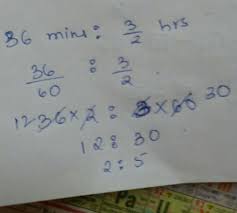 36 mins : 3/2 hrs
36/60 : 3/2
12 36 × 2 : 3 × 60 30
12 : 30
2 : 5
Pa